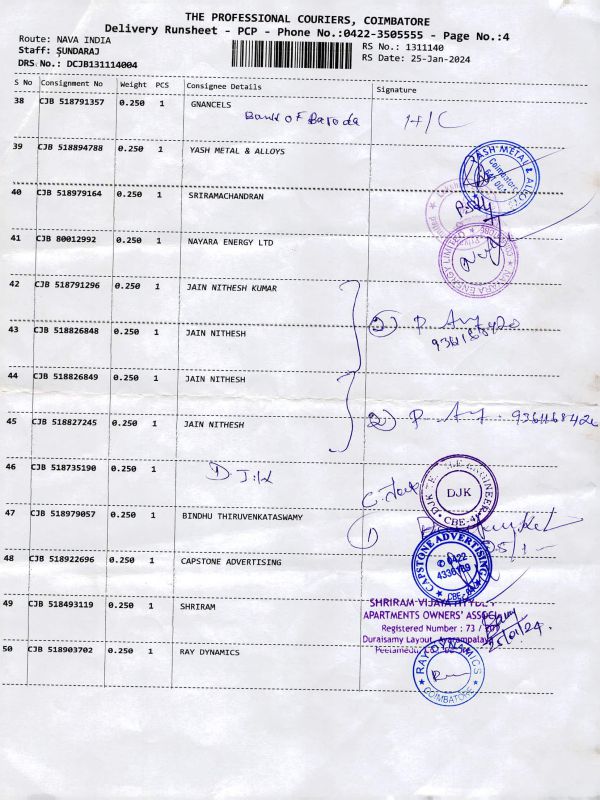 THE PROFESSIONAL COURIERS, COIMBATORE
Delivery Runsheet - PCP - Phone No.:0422-3505555 - Page No.:4
Route: NAVA INDIA
RS No.: 1311140
Staff: SUNDARAJ
RS Date: 25-Jan-2024
DRS No.: DCJB131114004
S No Consignment No Weight PCS Consignee Details Signature
38 CJB 518791357 0.250 1 GNANCELS
Bank of Baroda H/C
39 CJB 518894788 0.250 1 YASH METAL & ALLOYS
YASH METAL & ALLOYS
Coimbatore
40 CJB 518979164 0.250 1 SRIRAMACHANDRAN
41 CJB 80012992 0.250 1 NAYARA ENERGY LTD
NAYARA ENERGY LIMITED
42 CJB 518791296 0.250 1 JAIN NITHESH KUMAR
43 CJB 518826848 0.250 1 JAIN NITHESH
2) P
44 CJB 518826849 0.250 1 JAIN NITHESH
45 CJB 518827245 0.250 1 JAIN NITHESH
2) P
46 CJB 518735190 0.250 1
D J.K
DJK
CBE-4
47 CJB 518979057 0.250 1 BINDHU THIRUVENKATASWAMY
48 CJB 518922696 0.250 1 CAPSTONE ADVERTISING
CAPSTONE ADVERTISING
0422
49 CJB 518493119 0.250 1 SHRIRAM
SHRIRAM
APARTMENTS OWNERS' ASSOCI
Registered Number : 73 /
Duraisamy Layout, Avarampalaya
25/01/24.
50 CJB 518903702 0.250 1 RAY DYNAMICS
RAY DYNAMICS
COIMBATORE